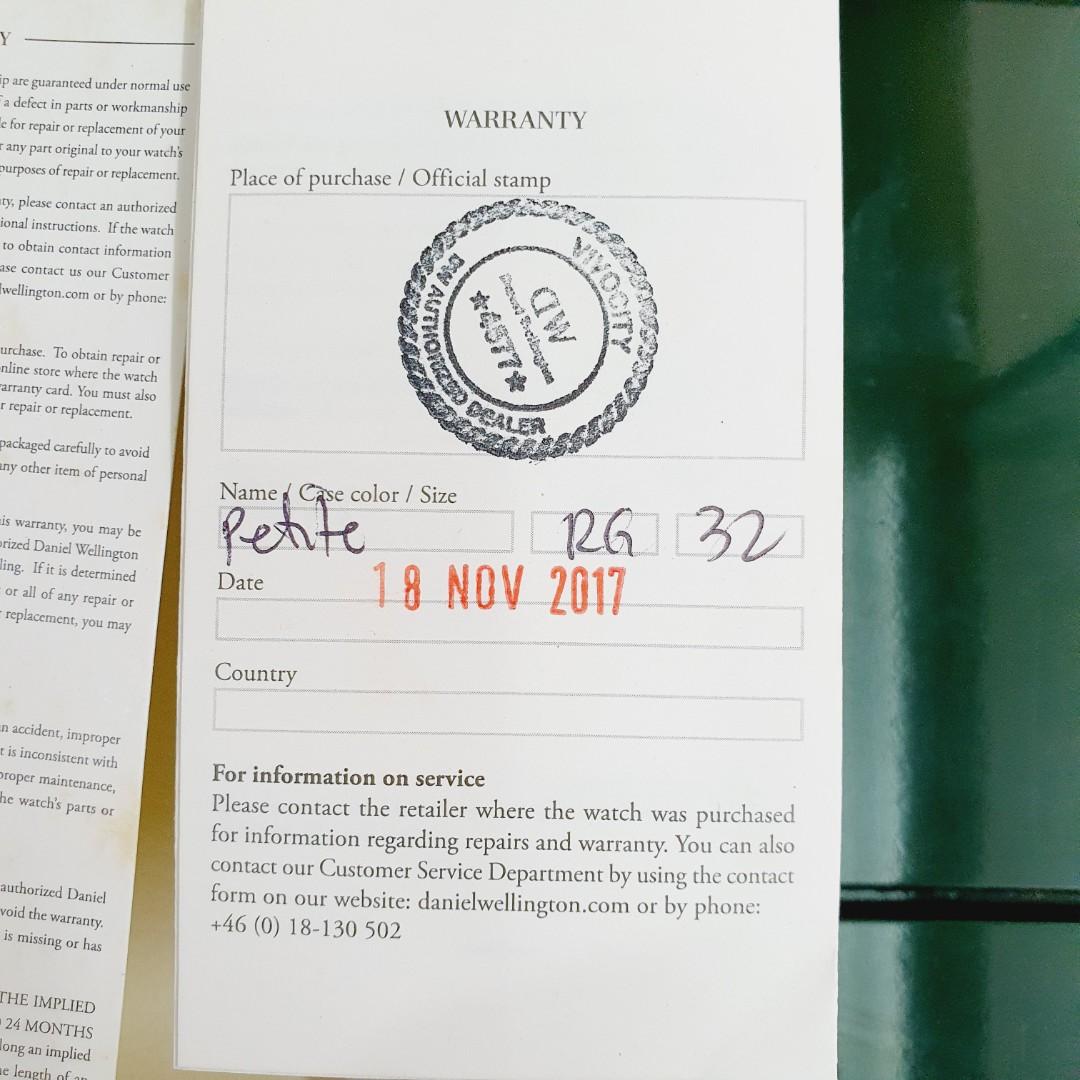 Y
ip are guaranteed under normal use
a defect in parts or workmanship
e for repair or replacement of your
any part original to your watch's
purposes of repair or replacement.
ty, please contact an authorized
ional instructions. If the watch
to obtain contact information
ase contact us our Customer
lwellington.com or by phone:
urchase. To obtain repair or
nline store where the watch
arranty card. You must also
r repair or replacement.
packaged carefully to avoid
ny other item of personal
is warranty, you may be
orized Daniel Wellington
ling. If it is determined
or all of any repair or
replacement, you may
n accident, improper
t is inconsistent with
proper maintenance,
he watch's parts or
authorized Daniel
void the warranty.
is missing or has
THE IMPLIED
24 MONTHS
long an implied
e length of an
WARRANTY
Place of purchase / Official stamp
VIVOCITY
DW AUTHORIZED DEALER
DW
Daniel Wellington
★4577★
Name / Case color / Size
Petite RG 32
Date
18 NOV 2017
Country
For information on service
Please contact the retailer where the watch was purchased
for information regarding repairs and warranty. You can also
contact our Customer Service Department by using the contact
form on our website: danielwellington.com or by phone:
+46 (0) 18-130 502